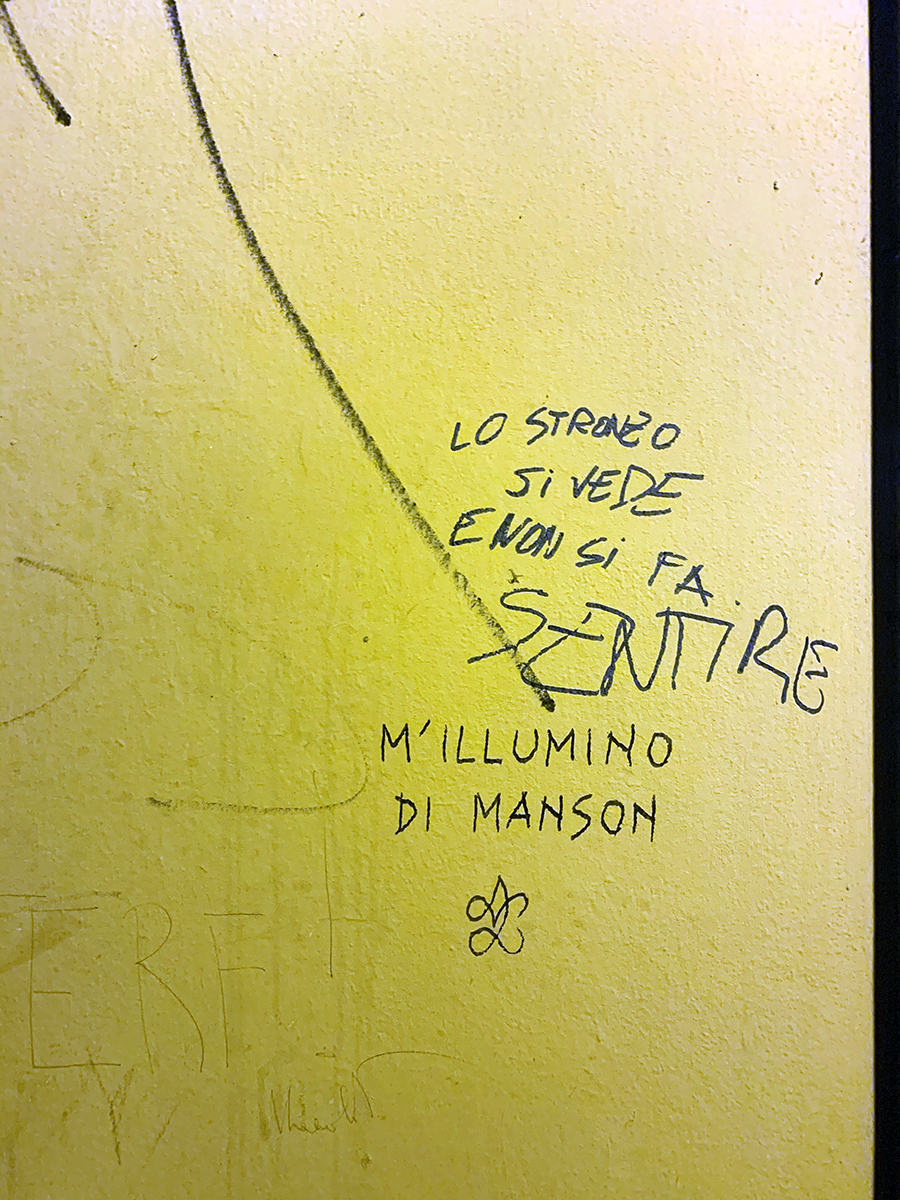 LO STRONZO
Si VEDE
E NON Si FA
SENTIRE
M'ILLUMINO
DI MANSON
ERF